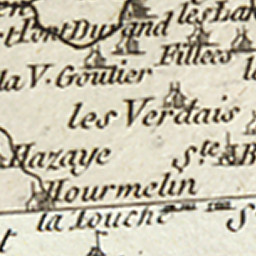 les Lan
t Pont Durand
Fillées
la V. Goutier
les Verdais
Hazaye
Ste B
Hourmelin
la Louche
S
t